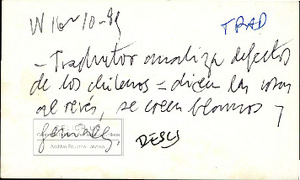 W 16-10-89
TRAD
- Traductor analiza defectos
de los chilenos = dicen las cosas
al revés, se creen blancos y
geniales.
DESCS